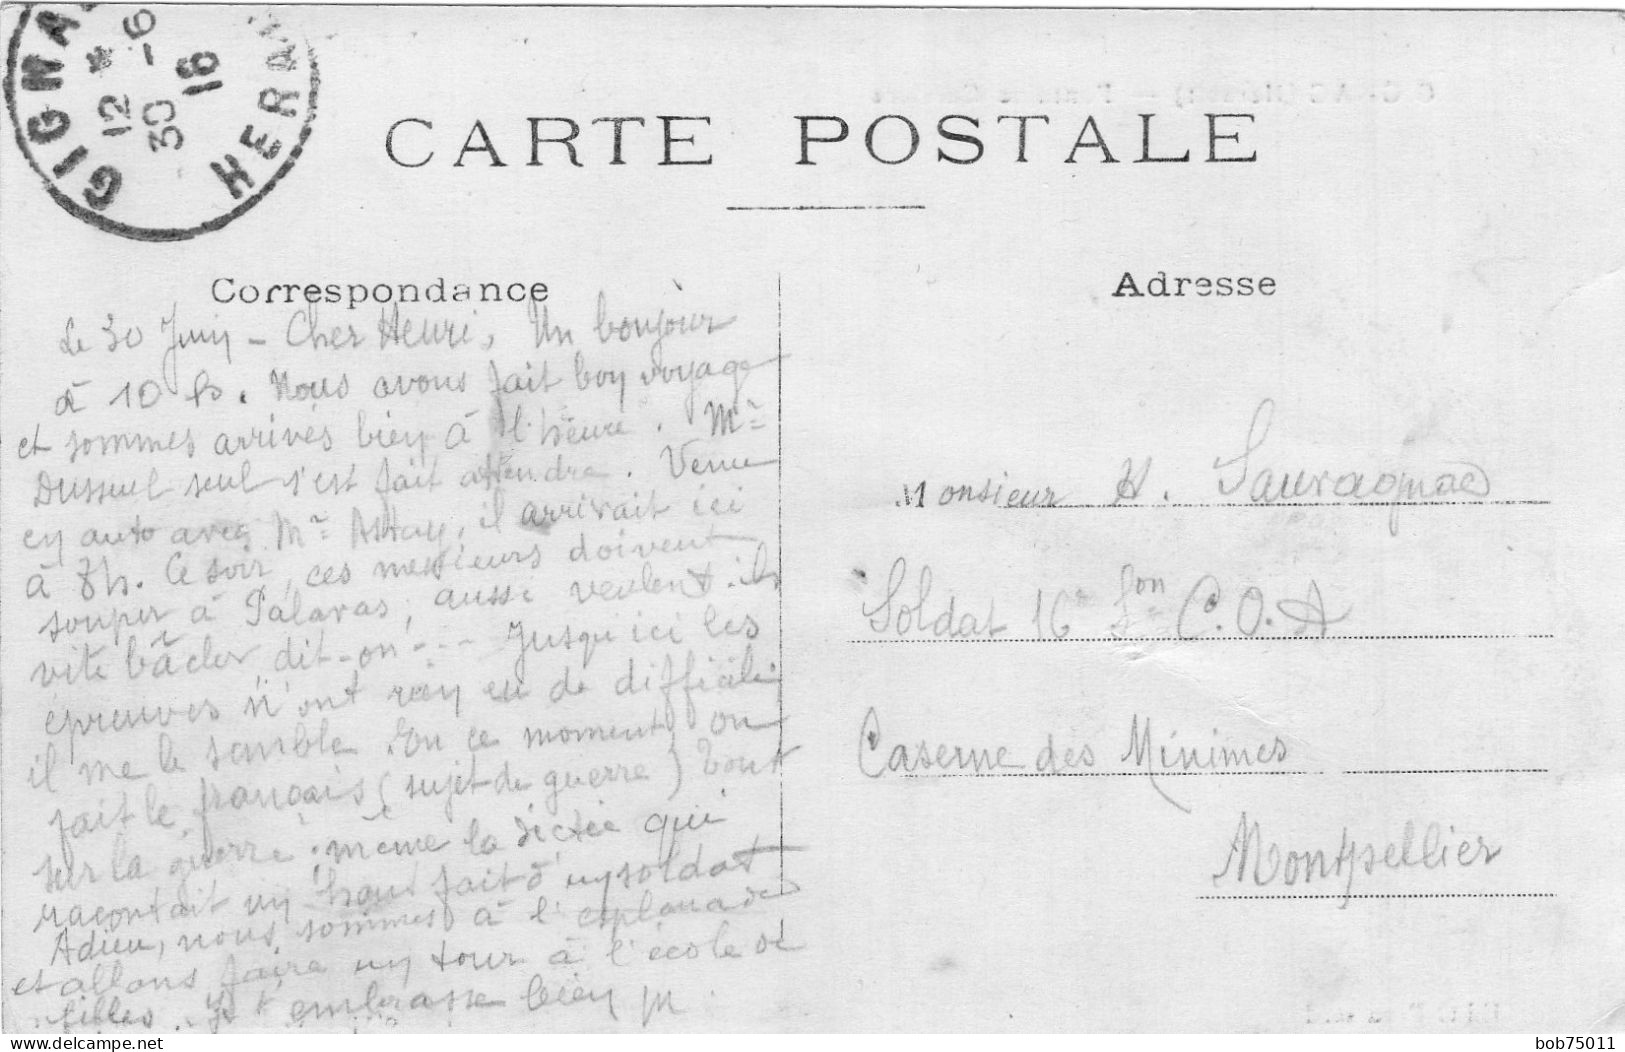 GIGNA
HERA
12 *
30 -6
16
CARTE POSTALE
Correspondance
Adresse
Le 30 Juin - Cher Henri, Un bonjour
à 10 h. Nous avons fait bon voyage
et sommes arrivés bien à l'heure. Mr
Dusseul seul s'est fait attendre. Venu
en auto avec Mr il arrivait ici
à 8h. Ce soir, ces messieurs doivent
souper à Palavas, aussi veulent-ils
vite bâcler dit-on --- Jusqu'ici les
épreuves n'ont rien eu de difficile
il me le semble. En ce moment, on
fait le français (sujet de guerre) Tout
sur la guerre; même la dictée qui
racontait un haut fait d'un soldat
Adieu, nous sommes à l'esplanade
et allons faire un tour à l'école de
filles. Je t'embrasse bien
Monsieur H. Sauvagnac
Soldat 16e Son C.O.A
Caserne des Minimes
Montpellier
delcampe.net
bob75011